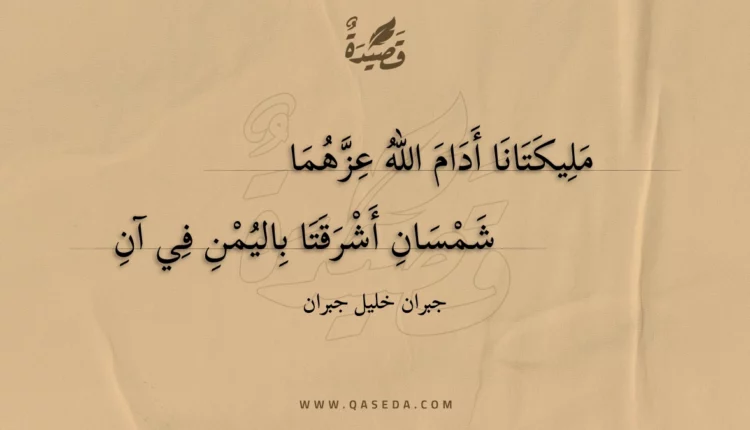 قَصِيْدَةٌ
مَلِيكَتَانَا أَدَامَ اللهُ عِزَّهُمَا
شَمْسَانِ أَشْرَقَتَا بِاليُمْنِ فِي آنِ
جبران خليل جبران
WWW.QASEDA.COM